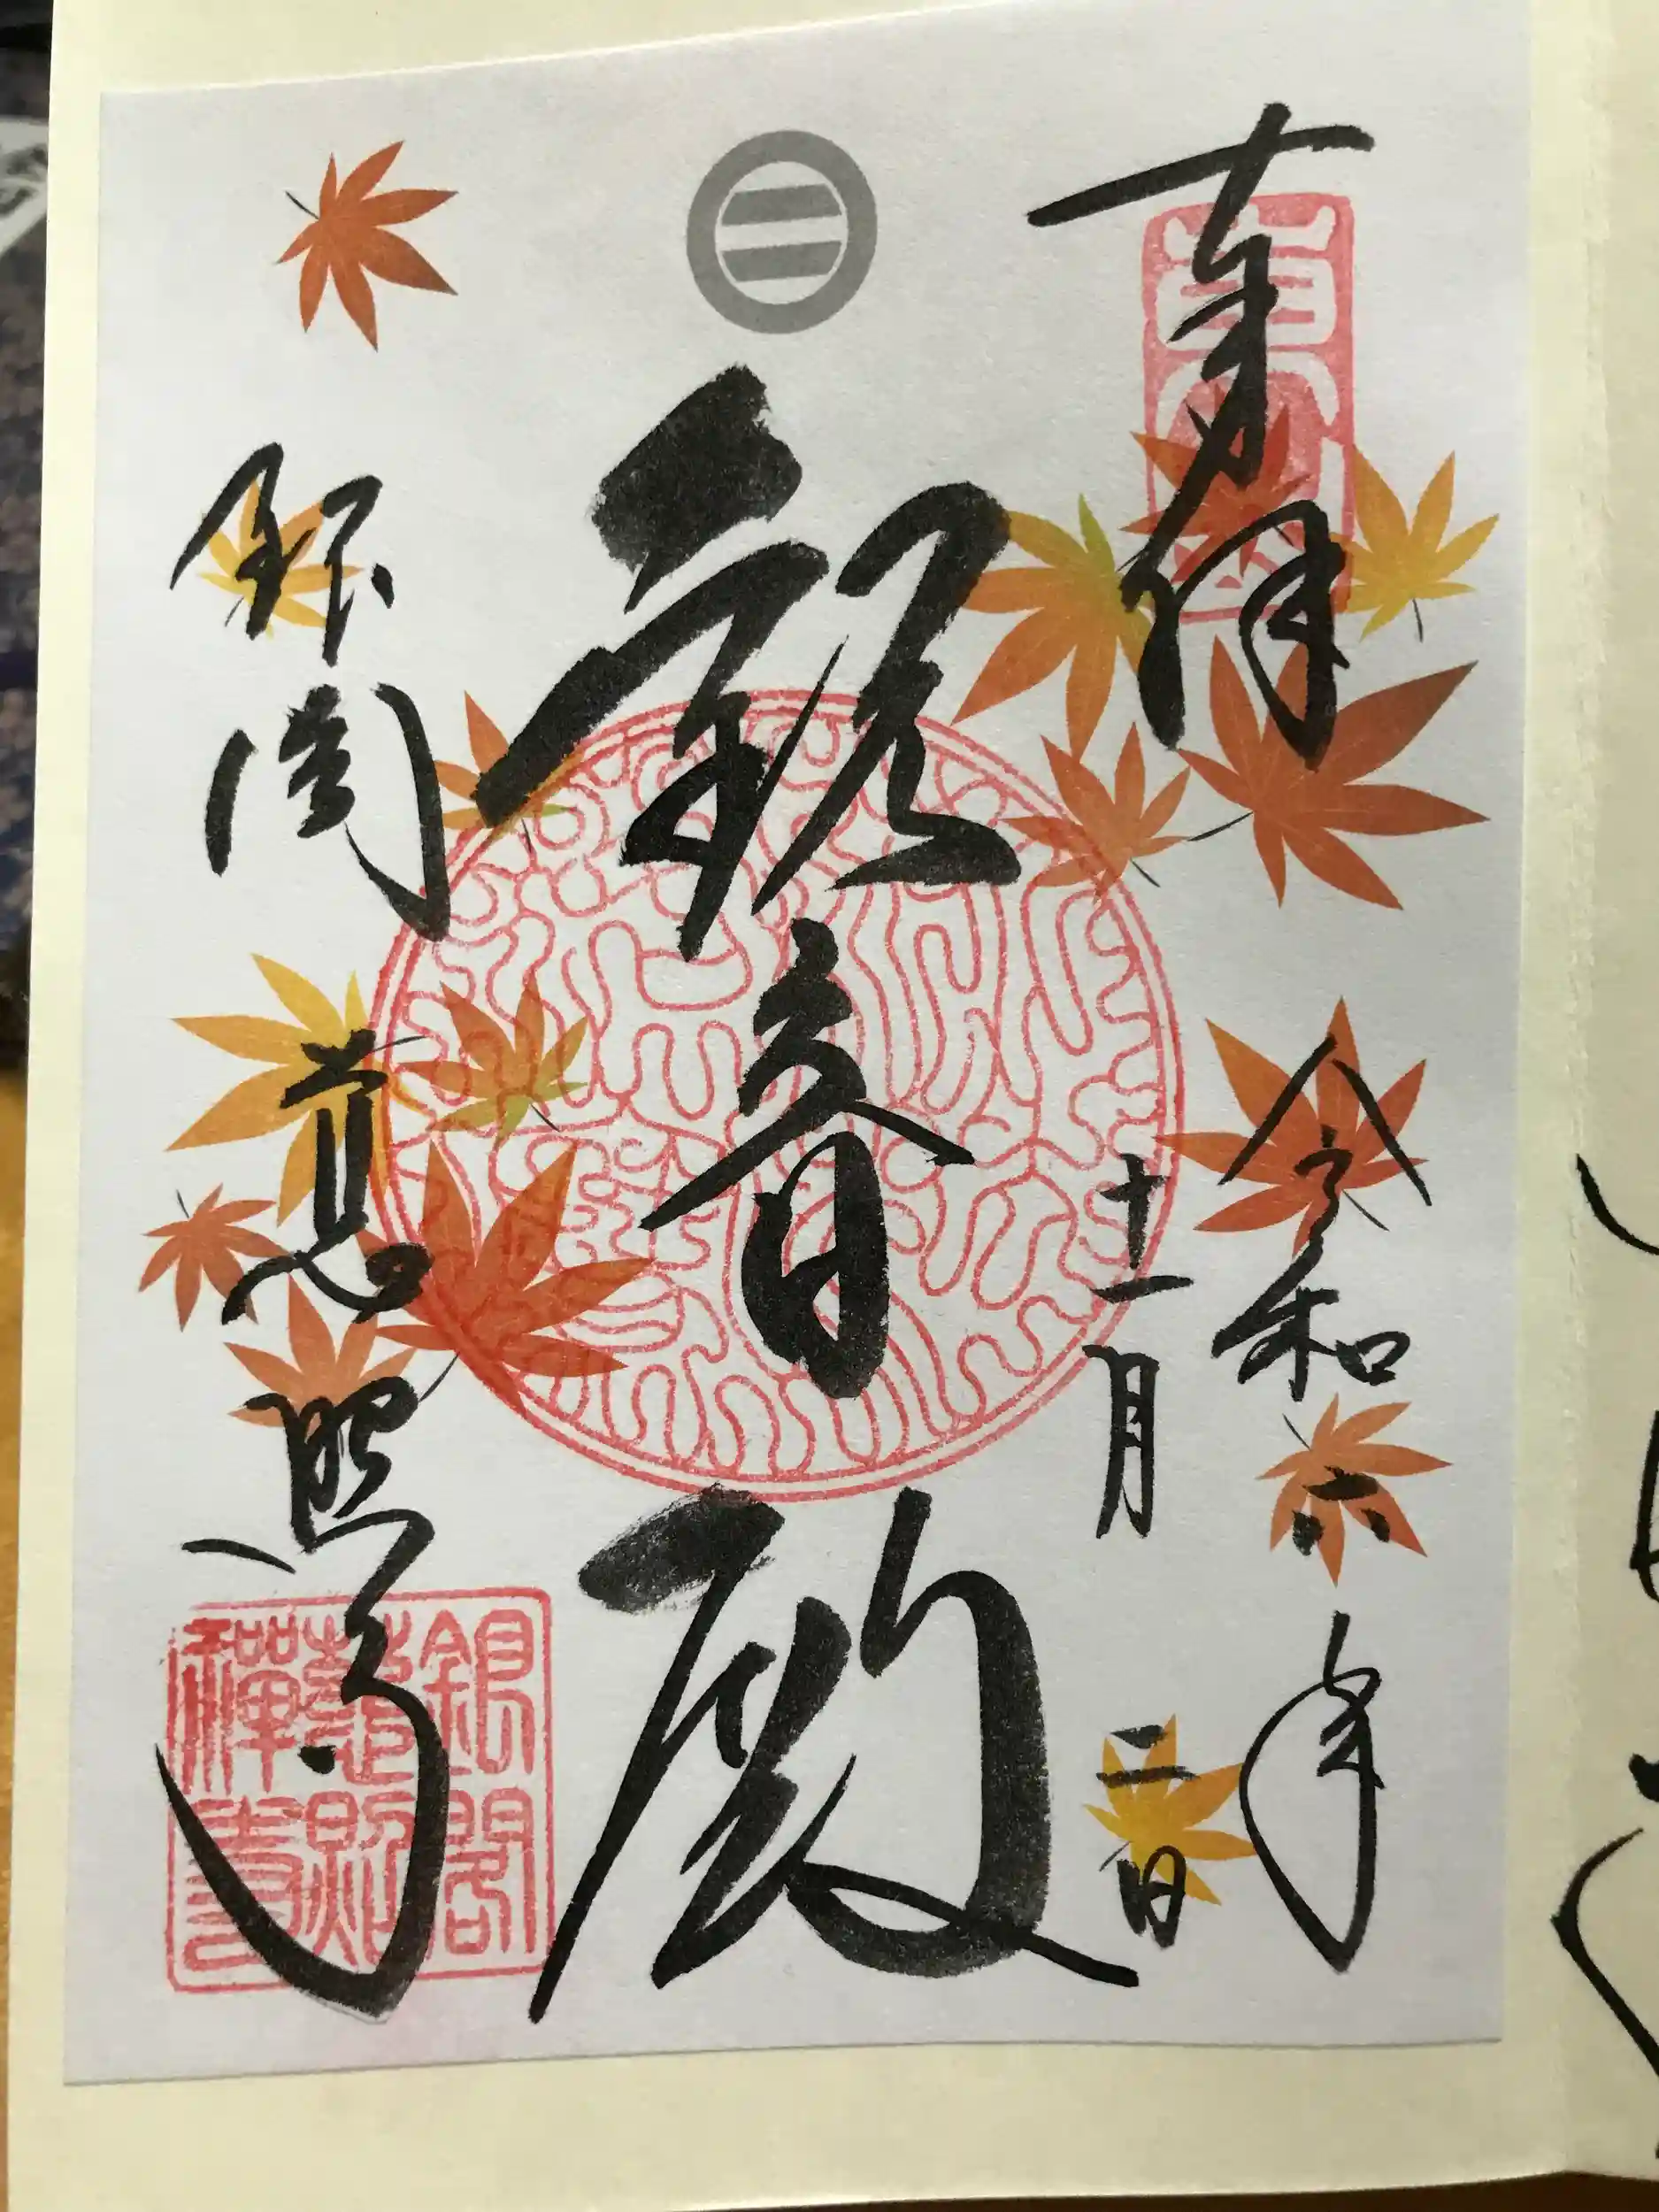 奉拝
令和六年
十一月二日
観音殿
銀閣
慈照寺
銀閣
慈照
禅寺